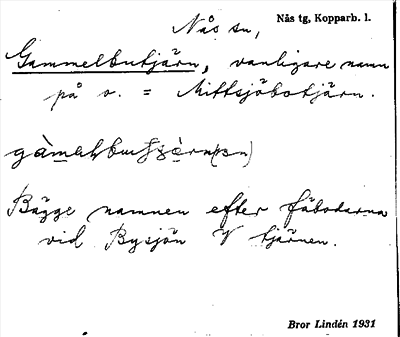 Nås sn,
Nås tg, Kopparb. l.
Gammelbutjärn, vanligare namn
på s. = Mittsjöbotjärn.
Bägge namnen efter fäbodarna
vid Bysjön V tjärnen.
Bror Lindén 1931